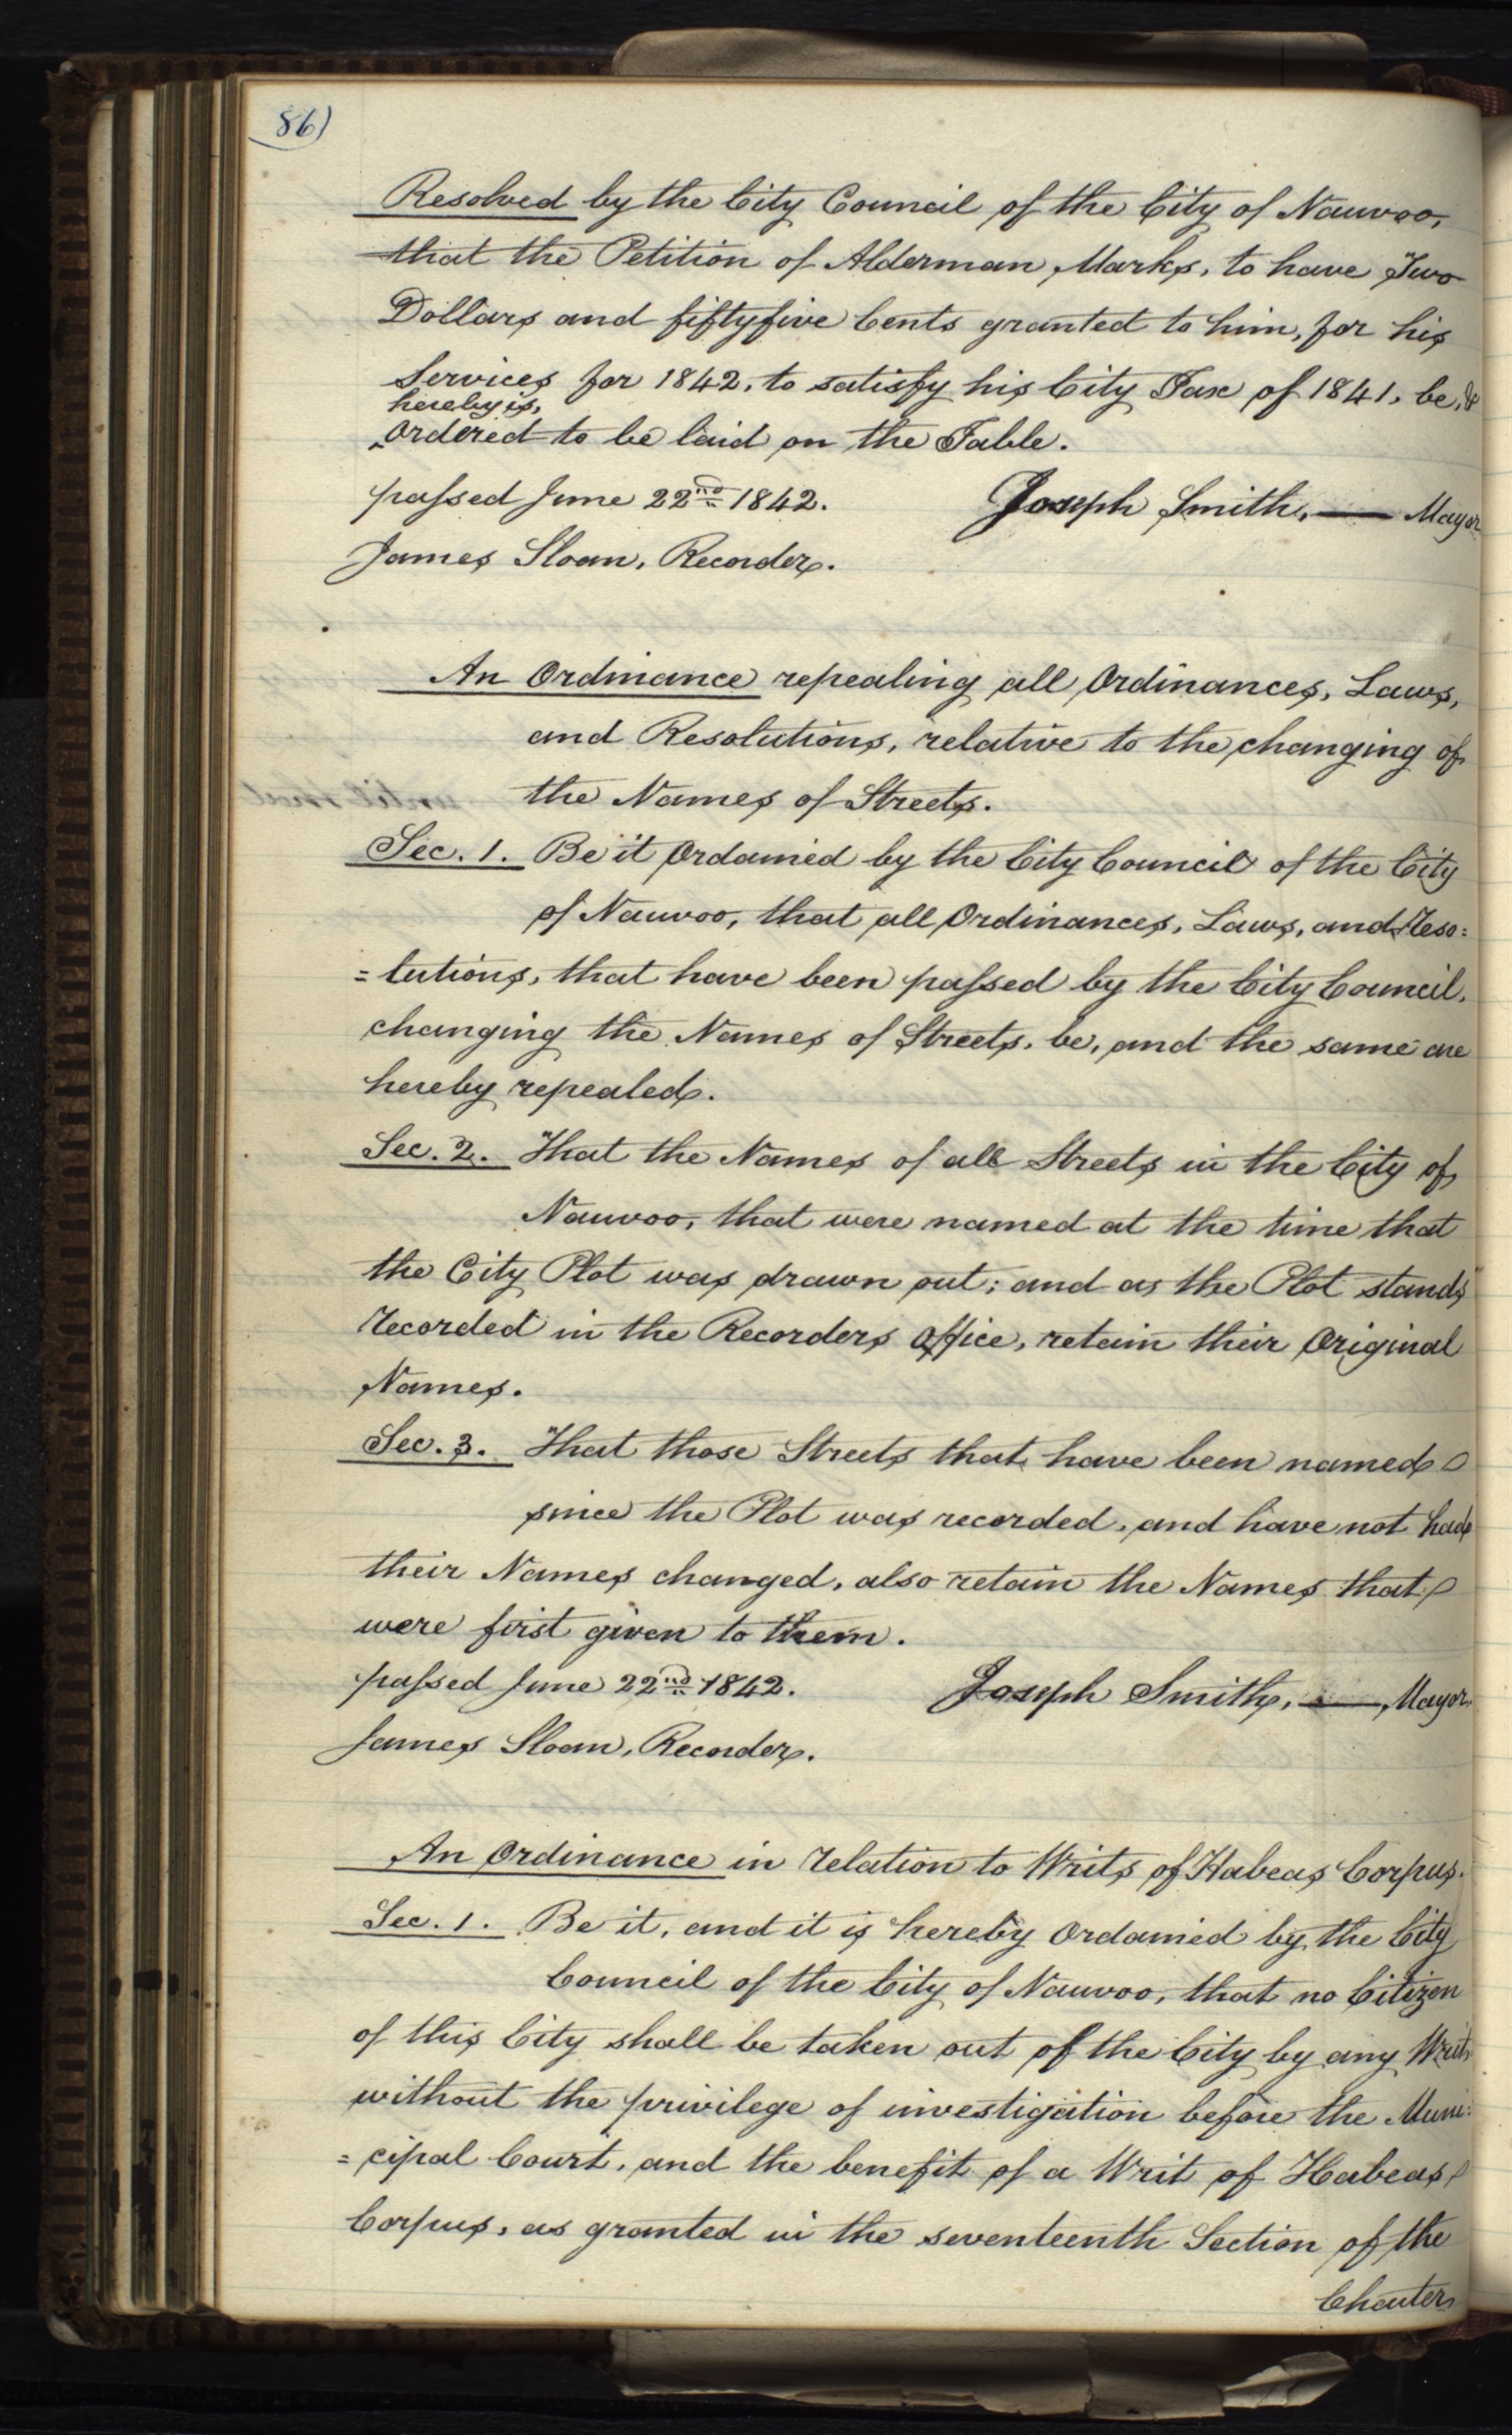 86)
Resolved by the City Council of the City of Nauvoo,
that the Petition of Alderman Marks, to have Two
Dollars and fiftyfive Cents granted to him, for his
Services for 1842, to satisfy his City Tax of 1841, be, &
hereby is,
ordered to be laid on the Table.
passed June 22nd 1842. Joseph Smith, — Mayor
James Sloan, Recorder.
An Ordinance repealing all Ordinances, Laws,
and Resolutions, relative to the changing of
the Names of Streets.
Sec. 1. Be it Ordained by the City Council of the City
of Nauvoo, that all Ordinances, Laws, and Reso=
=lutions, that have been passed by the City Council,
changing the Names of Streets, be, and the same are
hereby repealed.
Sec. 2. That the Names of all Streets in the City of
Nauvoo, that were named at the time that
the City Plot was drawn out; and as the Plot stands
recorded in the Recorders office, retain their Original
Names.
Sec. 3. That those Streets that have been named
since the Plot was recorded, and have not had
their Names changed, also retain the Names that
were first given to them.
passed June 22nd 1842. Joseph Smith, — Mayor.
James Sloan, Recorder.
An Ordinance in relation to Writs of Habeas Corpus.
Sec. 1. Be it, and it is hereby Ordained by the City
Council of the City of Nauvoo, that no Citizen
of this City shall be taken out of the City by any Writs
without the privilege of investigation before the Muni=
=cipal Court, and the benefit of a Writ of Habeas
Corpus, as granted in the seventeenth Section of the
Charter